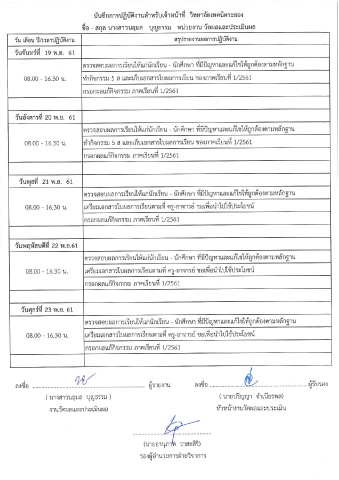 บันทึกการปฏิบัติงานสำหรับเจ้าหน้าที่ วิทยาลัยเทคนิคระยอง
ชื่อ - สกุล นางสาวนฤมล บุญธรรม หน่วยงาน วัดผลและประเมินผล
วัน เดือน ปีการปฏิบัติงาน สรุปรายงานผลการปฏิบัติงาน
วันจันทร์ที่ 19 พ.ย. 61
08.00 - 16.30 น. ตรวจสอบผลการเรียนให้แก่นักเรียน - นักศึกษา ที่มีปัญหาและแก้ไขให้ถูกต้องตามหลักฐาน
ทำกิจกรรม 5 ส และเก็บเอกสารใบผลการเรียน ของภาคเรียนที่ 1/2561
กรอกผลแก้กิจกรรม ภาคเรียนที่ 1/2561
วันอังคารที่ 20 พ.ย. 61
08.00 - 16.30 น. ตรวจสอบผลการเรียนให้แก่นักเรียน - นักศึกษา ที่มีปัญหาและแก้ไขให้ถูกต้องตามหลักฐาน
ทำกิจกรรม 5 ส และเก็บเอกสารใบผลการเรียน ของภาคเรียนที่ 1/2561
กรอกผลแก้กิจกรรม ภาคเรียนที่ 1/2561
วันพุธที่ 21 พ.ย. 61
08.00 - 16.30 น. ตรวจสอบผลการเรียนให้แก่นักเรียน - นักศึกษา ที่มีปัญหาและแก้ไขให้ถูกต้องตามหลักฐาน
เตรียมเอกสารใบผลการเรียนตามที่ ครู-อาจารย์ ขอเพื่อนำไปใช้ประโยชน์
กรอกผลแก้กิจกรรม ภาคเรียนที่ 1/2561
วันพฤหัสบดีที่ 22 พ.ย.61
08.00 - 16.30 น. ตรวจสอบผลการเรียนให้แก่นักเรียน - นักศึกษา ที่มีปัญหาและแก้ไขให้ถูกต้องตามหลักฐาน
เตรียมเอกสารใบผลการเรียนตามที่ ครู-อาจารย์ ขอเพื่อนำไปใช้ประโยชน์
กรอกผลแก้กิจกรรม ภาคเรียนที่ 1/2561
วันศุกร์ที่ 23 พ.ย. 61
08.00 - 16.30 น. ตรวจสอบผลการเรียนให้แก่นักเรียน - นักศึกษา ที่มีปัญหาและแก้ไขให้ถูกต้องตามหลักฐาน
เตรียมเอกสารใบผลการเรียนตามที่ ครู-อาจารย์ ขอเพื่อนำไปใช้ประโยชน์
กรอกผลแก้กิจกรรม ภาคเรียนที่ 1/2561
ลงชื่อ ผู้รายงาน ลงชื่อ ผู้รับรอง
( นางสาวนฤมล บุญธรรม ) ( นายปริญญา จำเนียรพล )
งานวัดผลและประเมินผล หัวหน้างานวัดผลและประเมิน
(นายอานุภาพ วาสะสิริ)
รองผู้อำนวยการฝ่ายวิชาการ